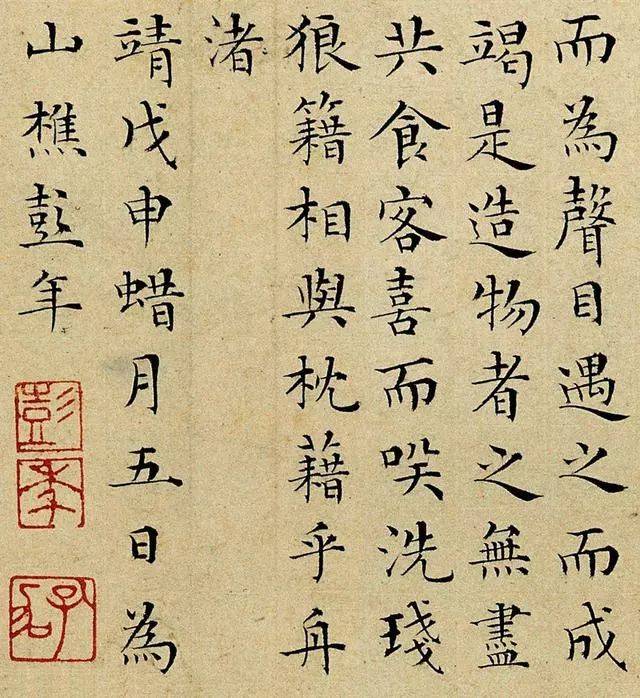 而為聲目遇之而成
竭是造物者之無盡
共食客喜而咲洗琖
狼籍相與枕藉乎舟
渚
靖戊申蜡月五日為
山樵彭年
彭年